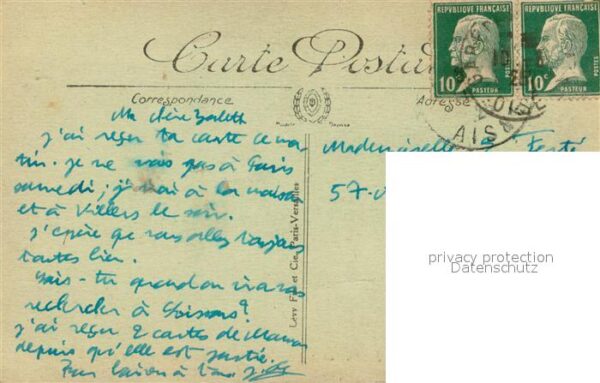 Carte Postale
RÉPUBLIQUE FRANÇAISE
10c
POSTES
PASTEUR
RÉPUBLIQUE FRANÇAISE
10c
POSTES
PASTEUR
AIS
Correspondance
Adresse
Ma chère
j'ai reçu ta carte ce ma
tin. je ne vais pas à Paris
samedi; j'irai à la maison
et à Villers le soir.
j'espère que vous allez toujours
toutes bien.
Sais-tu quand on ira vous
rechercher à Soissons?
j'ai reçu 2 cartes de Maman
depuis qu'elle est partie.
à
Mademoiselle Ferté
57
Lévy Fils et Cie, Paris-Versailles
privacy protection
Datenschutz